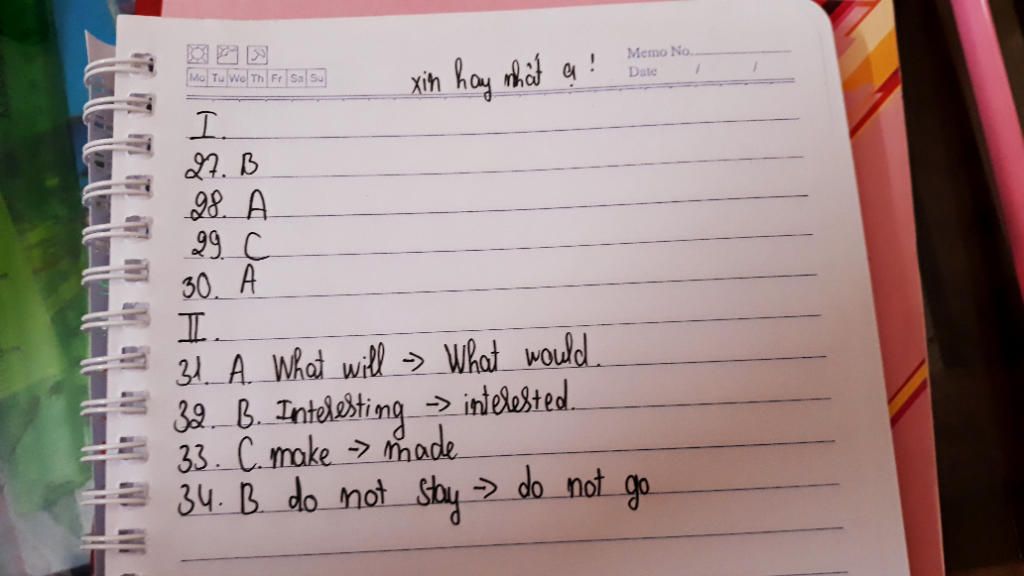 Mo Tu We Th Fr Sa Su
xin hay nhất ạ !
Memo No.
Date / /
I.
27. B
28. A
29. C
30. A
II.
31. A. What will -> What would.
32. B. Interesting -> interested.
33. C. make -> made
34. B do not stay -> do not go